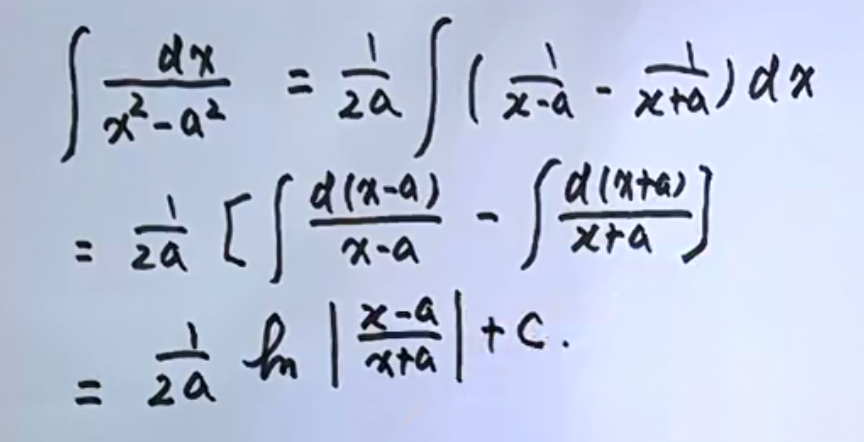 ∫ dx/(x²-a²) = 1/(2a) ∫ (1/(x-a) - 1/(x+a)) dx
= 1/(2a) [∫ d(x-a)/(x-a) - ∫ d(x+a)/(x+a)]
= 1/(2a) ln |(x-a)/(x+a)| + C.